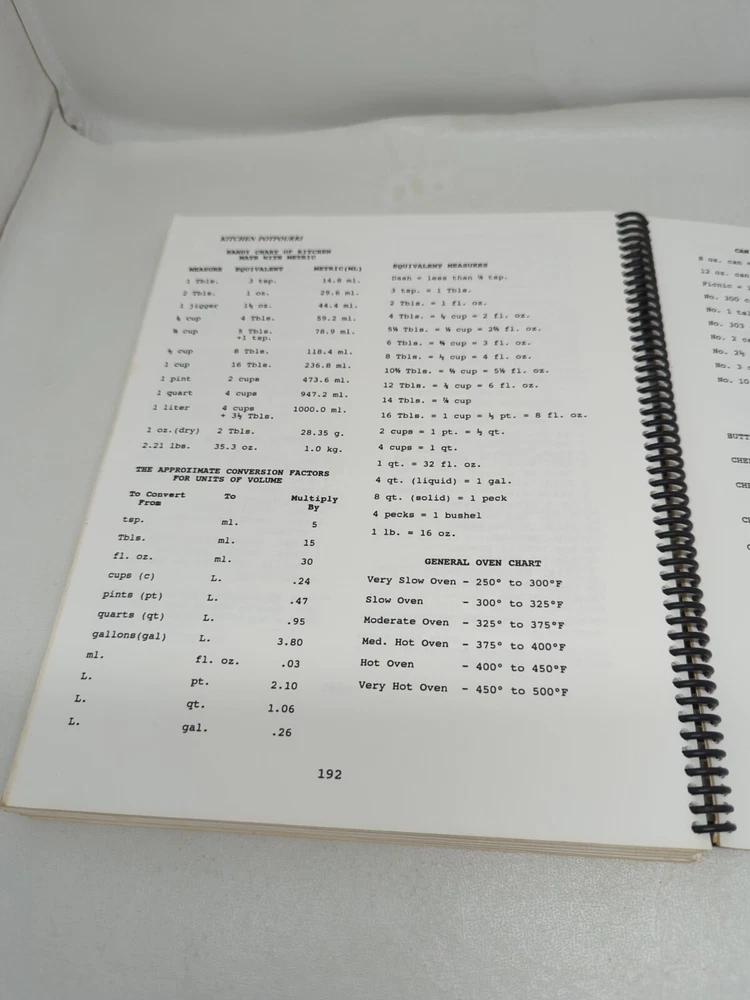 KITCHEN POTPOURRI
HANDY CHART OF KITCHEN
MATH WITH METRIC
MEASURE EQUIVALENT METRIC(ML)
1 Tbls. 3 tsp. 14.8 ml.
2 Tbls. 1 oz. 29.6 ml.
1 jigger 1½ oz. 44.4 ml.
¼ cup 4 Tbls. 59.2 ml.
⅓ cup 5 Tbls. 78.9 ml.
+1 tsp.
½ cup 8 Tbls. 118.4 ml.
1 cup 16 Tbls. 236.8 ml.
1 pint 2 cups 473.6 ml.
1 quart 4 cups 947.2 ml.
1 liter 4 cups 1000.0 ml.
+ 3½ Tbls.
1 oz.(dry) 2 Tbls. 28.35 g.
2.21 lbs. 35.3 oz. 1.0 kg.
THE APPROXIMATE CONVERSION FACTORS
FOR UNITS OF VOLUME
To Convert To Multiply
From By
tsp. ml. 5
Tbls. ml. 15
fl. oz. ml. 30
cups (c) L. .24
pints (pt) L. .47
quarts (qt) L. .95
gallons(gal) L. 3.80
ml. fl. oz. .03
L. pt. 2.10
L. qt. 1.06
L. gal. .26
EQUIVALENT MEASURES
Dash = less than ⅛ tsp.
3 tsp. = 1 Tbls.
2 Tbls. = 1 fl. oz.
4 Tbls. = ¼ cup = 2 fl. oz.
5⅓ Tbls. = ⅓ cup = 2⅔ fl. oz.
6 Tbls. = ⅜ cup = 3 fl. oz.
8 Tbls. = ½ cup = 4 fl. oz.
10⅔ Tbls. = ⅔ cup = 5⅓ fl. oz.
12 Tbls. = ¾ cup = 6 fl. oz.
14 Tbls. = ⅞ cup
16 Tbls. = 1 cup = ½ pt. = 8 fl. oz.
2 cups = 1 pt. = ½ qt.
4 cups = 1 qt.
1 qt. = 32 fl. oz.
4 qt. (liquid) = 1 gal.
8 qt. (solid) = 1 peck
4 pecks = 1 bushel
1 lb. = 16 oz.
GENERAL OVEN CHART
Very Slow Oven - 250° to 300°F
Slow Oven - 300° to 325°F
Moderate Oven - 325° to 375°F
Med. Hot Oven - 375° to 400°F
Hot Oven - 400° to 450°F
Very Hot Oven - 450° to 500°F
192
CAN
8 oz. can =
12 oz. can
Picnic =
No. 300
No. 1 tal
No. 303
No. 2
No. 2½
No. 3
No. 10
BUTT
CHE
CHE